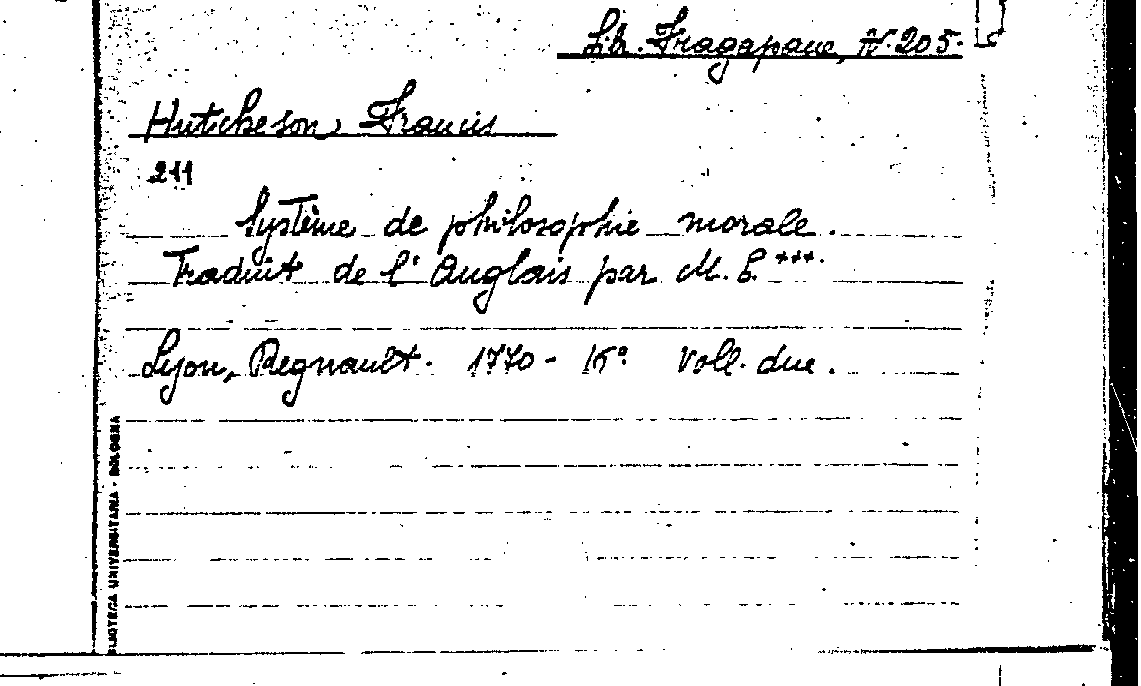 Lib. Fragapane, N. 205.
Hutcheson, Francis
211
Système de philosophie morale.
Traduit de l'Anglais par M. E.***.
Lyon, Regnault. 1770 - 16° Voll. due.
BIBLIOTECA UNIVERSITARIA - BOLOGNA